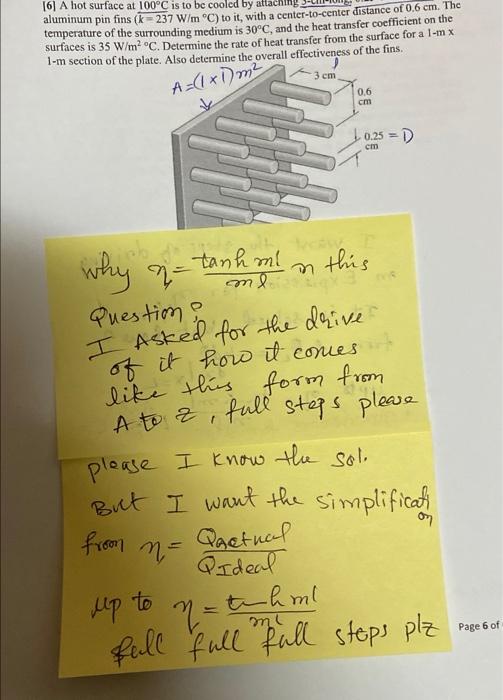 16] A hot surface at 100°C is to be cooled by attaching 3-cm-long,
aluminum pin fins (k = 237 W/m °C) to it, with a center-to-center distance of 0.6 cm. The
temperature of the surrounding medium is 30°C, and the heat transfer coefficient on the
surfaces is 35 W/m² °C. Determine the rate of heat transfer from the surface for a 1-m x
1-m section of the plate. Also determine the overall effectiveness of the fins.
A=(1x1)m²
3 cm
0.6
cm
0.25 = D
cm
why η = tanh ml / ml n this
Question?
I Asked for the drive
of it how it comes
like this form from
A to z, full steps please
please I know the sol.
But I want the simplification
from η = Qactual / QIdeal
up to η = tanh ml / ml
full full full steps plz
Page 6 of